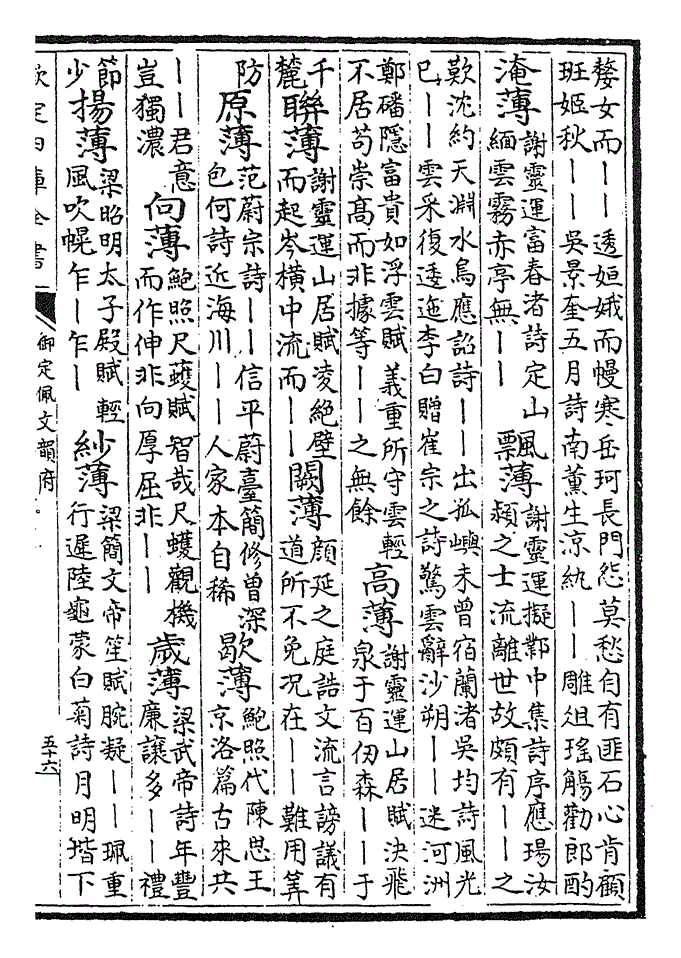 嫠女而——透姮娥而幔寒 岳珂長門怨莫愁自有匪石心肯顧
班姬秋——吳景奎五月詩南薰生涼紈——雕俎瑤觴勸郎酌
淹薄 謝靈運富春渚詩定山緬雲霧赤亭無—— 飄薄 謝靈運擬鄴中集詩序應瑒汝潁之士流離世故頗有——之
歎沈約天淵水鳥應詔詩——出孤嶼未曾宿蘭渚吳均詩風光
已——雲采復逶迤李白贈崔宗之詩驚雲辭沙朔——迷河洲
鄭磻隱富貴如浮雲賦 義重所守雲輕不居苟崇高而非據等——之無餘 高薄 謝靈運山居賦決飛泉于百仞森——于
千麓 聯薄 謝靈運山居賦凌絶壁而起岑橫中流而—— 闕薄 顔延之庭誥文流言謗議有道所不免况在——難用筭
防 原薄 范蔚宗詩——信平蔚臺簡修曾深包何詩近海川——人家本自稀 歇薄 鮑照代陳思王京洛篇古來共
——君意豈獨濃 向薄 鮑照尺蠖賦 智哉尺蠖觀機而作伸非向厚屈非—— 歲薄 梁武帝詩年豐廉讓多——禮
節少 揚薄 梁昭明太子殿賦輕風吹幌乍—乍— 紗薄 梁簡文帝笙賦腕凝——珮重行遲陸龜蒙白菊詩月明堦下
欽定四庫全書 御定佩文韻府 五十六